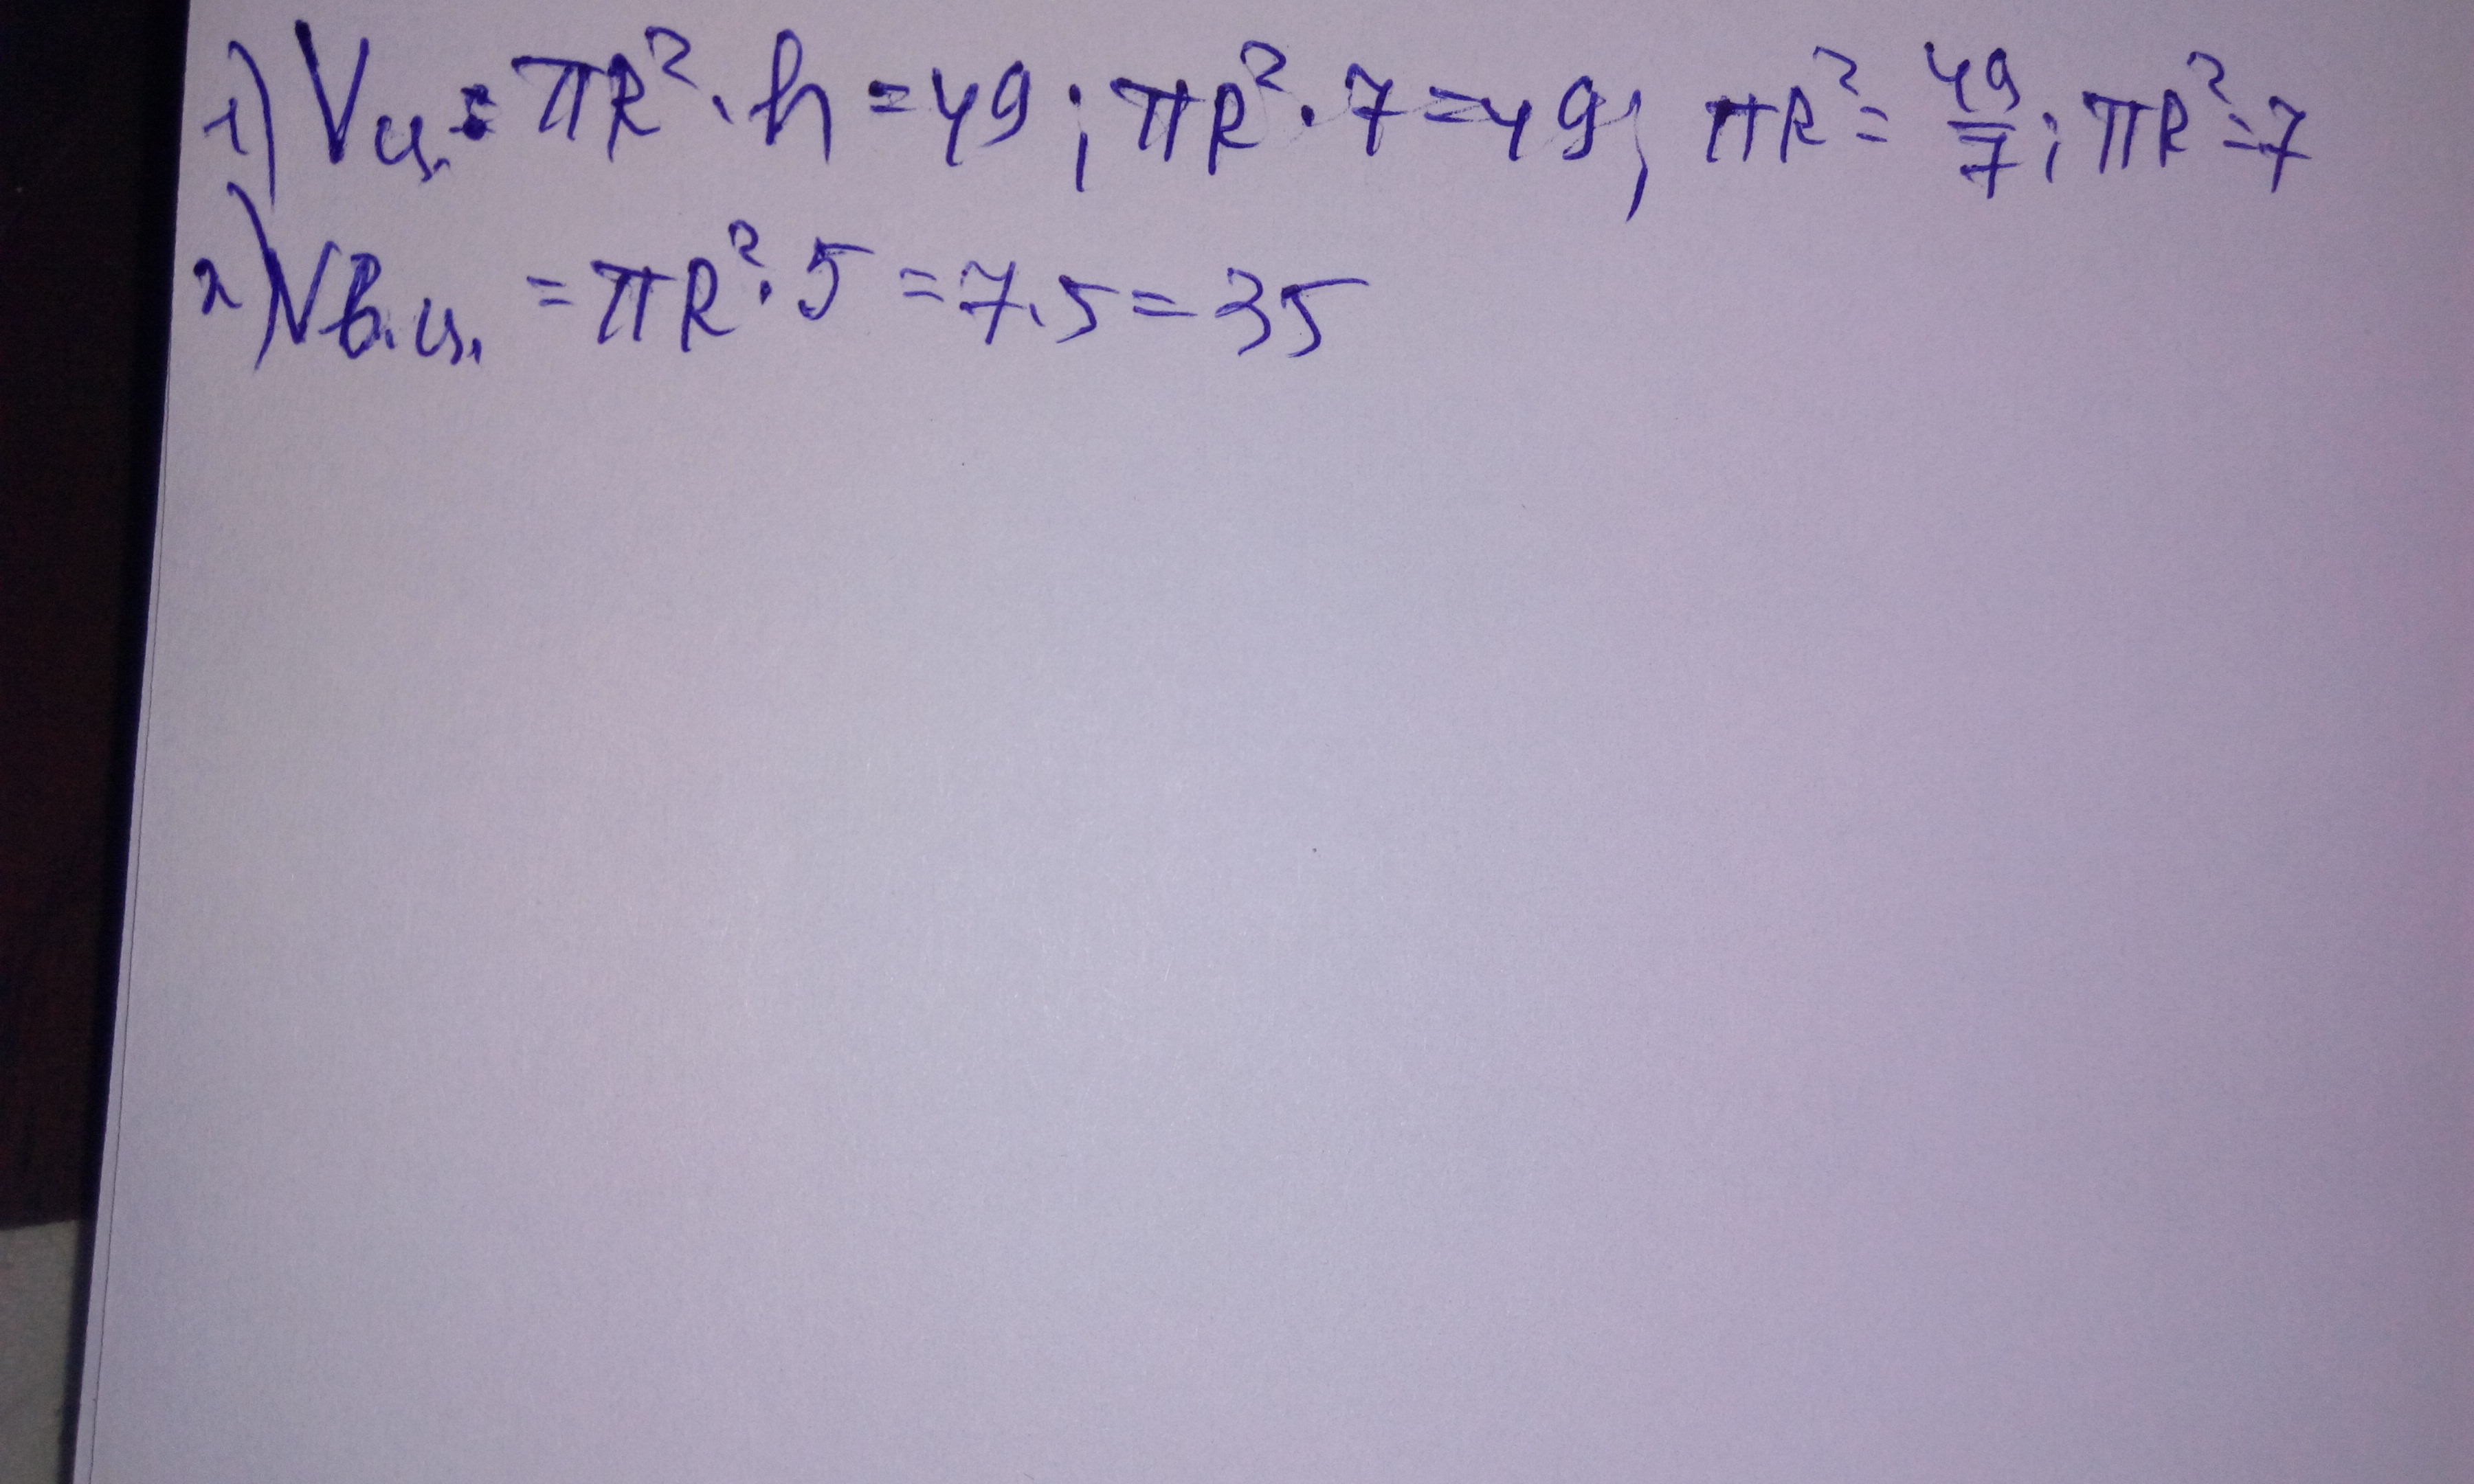 1) Vц. = πR² · h = 49 ; πR² · 7 = 49 ; πR² = 49/7 ; πR² = 7
2) Vв.ц. = πR² · 5 = 7 · 5 = 35